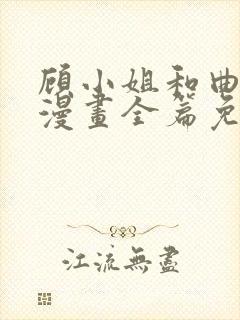 顾小姐和曲
漫畫全篇免
江流無盡